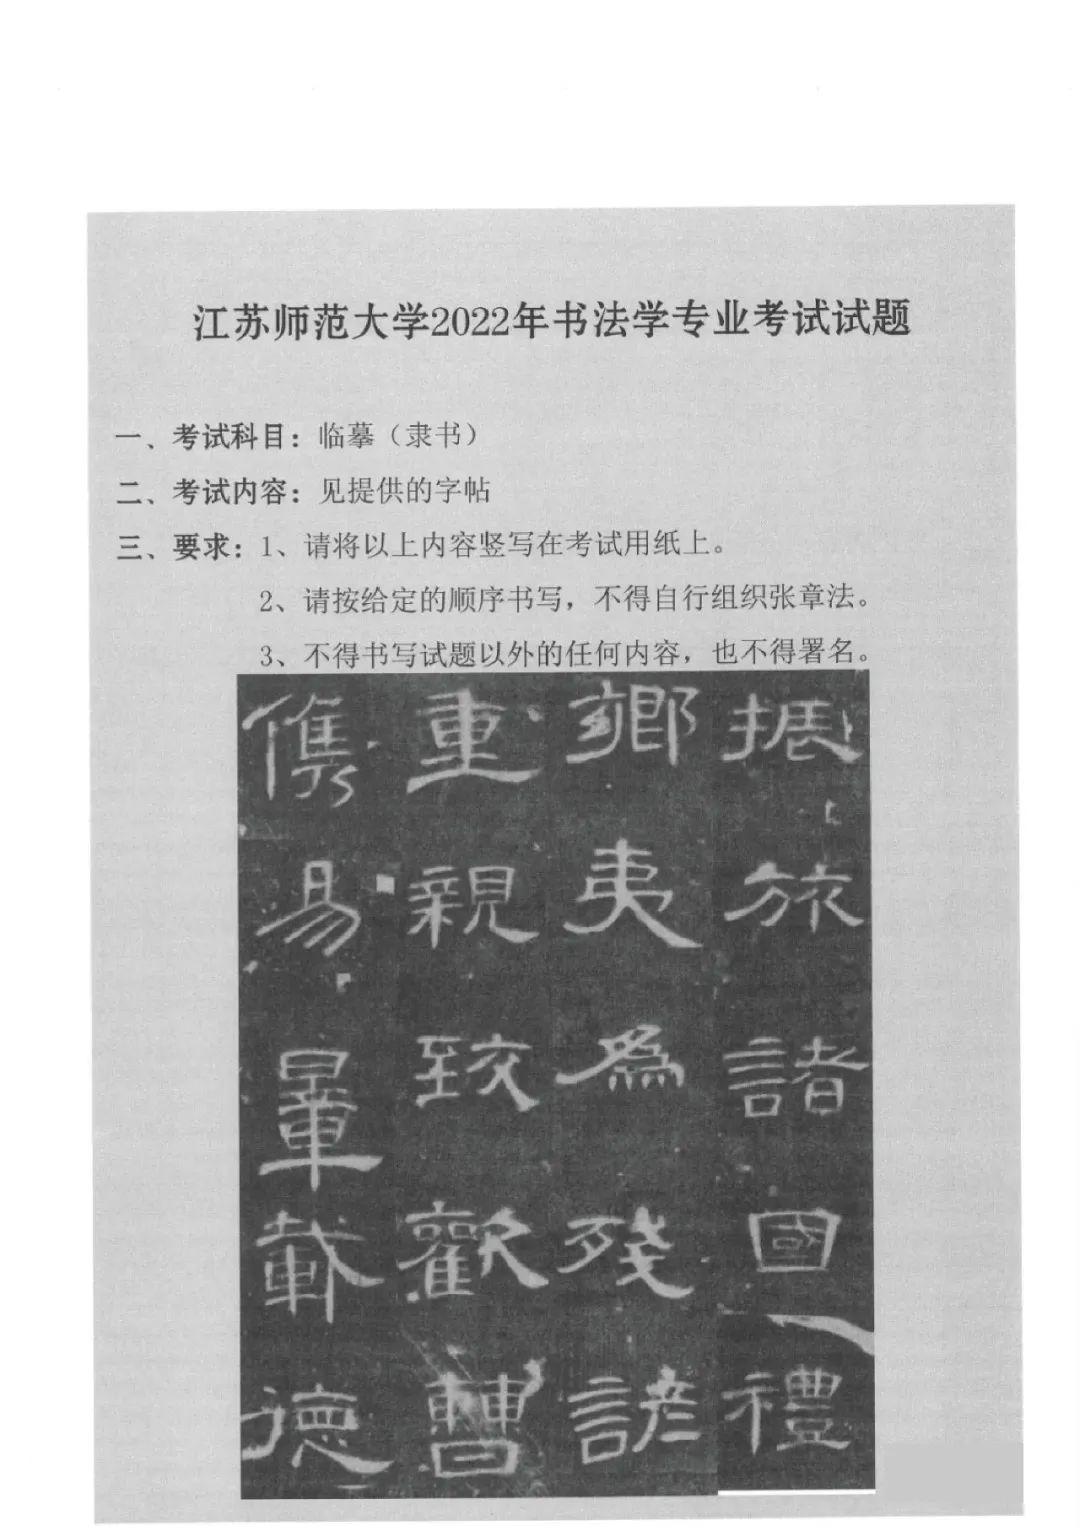 江苏师范大学2022年书法学专业考试试题
一、考试科目：临摹（隶书）
二、考试内容：见提供的字帖
三、要求：1、请将以上内容竖写在考试用纸上。
2、请按给定的顺序书写，不得自行组织张章法。
3、不得书写试题以外的任何内容，也不得署名。
振旅諸國禮
鄉夷為殘諺
重親致歡曹
儁易載德